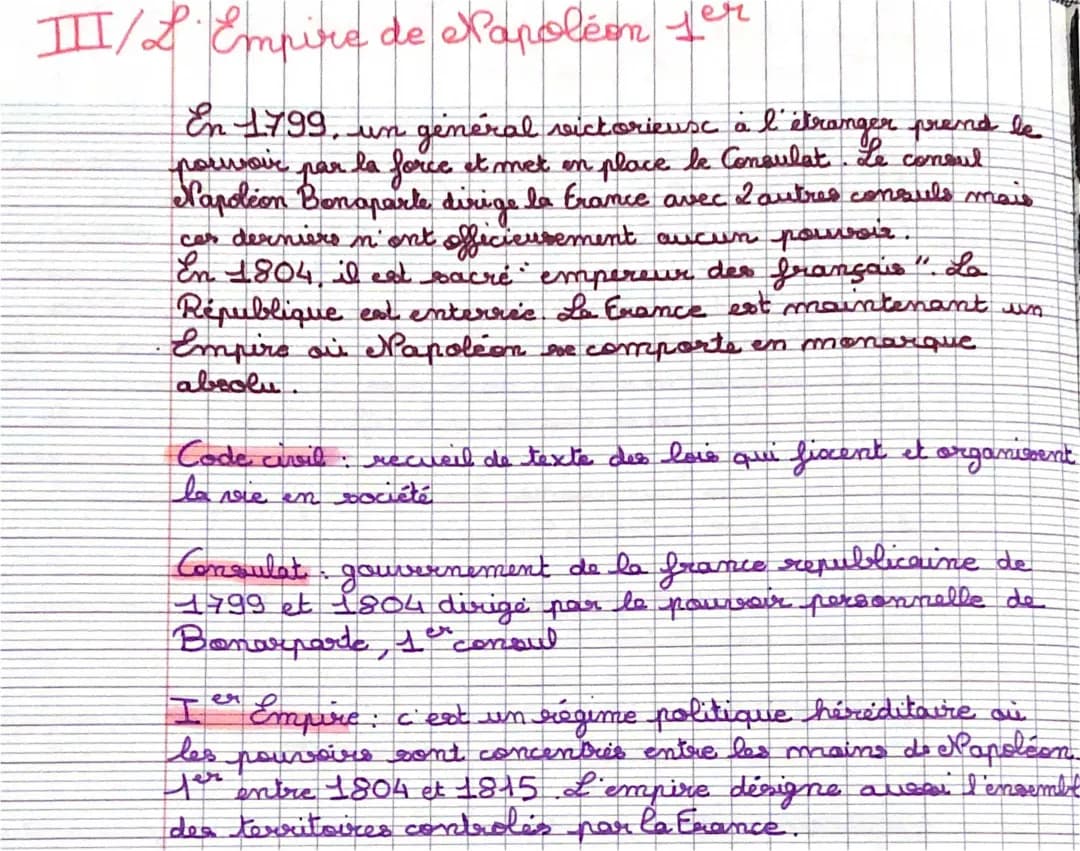 III/ L'Empire de Napoléon 1er
En 1799, un général victorieux à l'étranger prend le
pouvoir par la force et met en place le Consulat. Le consul
Napoléon Bonaparte dirige la France avec 2 autres consuls mais
ces derniers n'ont officieusement aucun pouvoir.
En 1804, il est sacré "empereur des français". La
République est enterrée. La France est maintenant un
Empire où Napoléon se comporte en monarque
absolu.
Code civil : recueil de texte des lois qui fixent et organisent
la vie en société
Consulat : gouvernement de la france republicaine de
1799 et 1804 dirigé par le pouvoir personnelle de
Bonarparte, 1er consul
Ier Empire : c'est un régime politique héréditaire où
les pouvoirs sont concentrés entre les mains de Napoléon
1er entre 1804 et 1815. L'empire désigne aussi l'ensembl
des territoires controlés par la France.